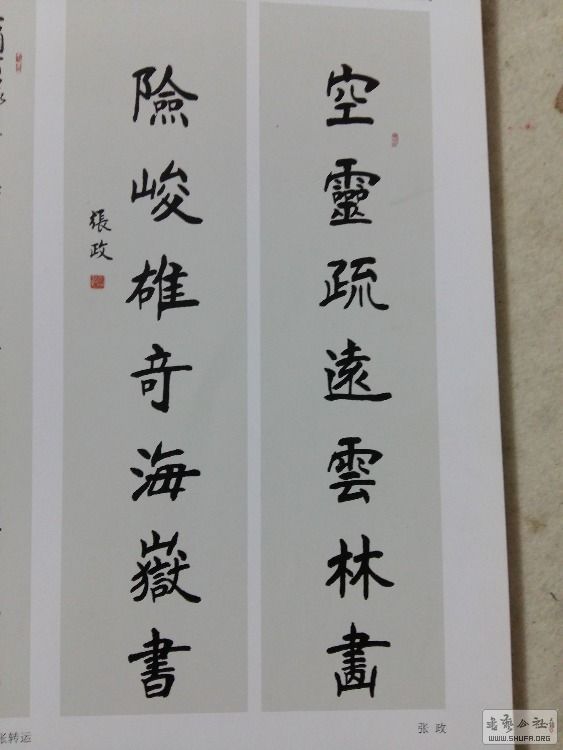 空靈疏遠雲林畫
險峻雄奇海嶽書
張政
张转运
张 政
书艺公社
WWW.SHUFA.ORG